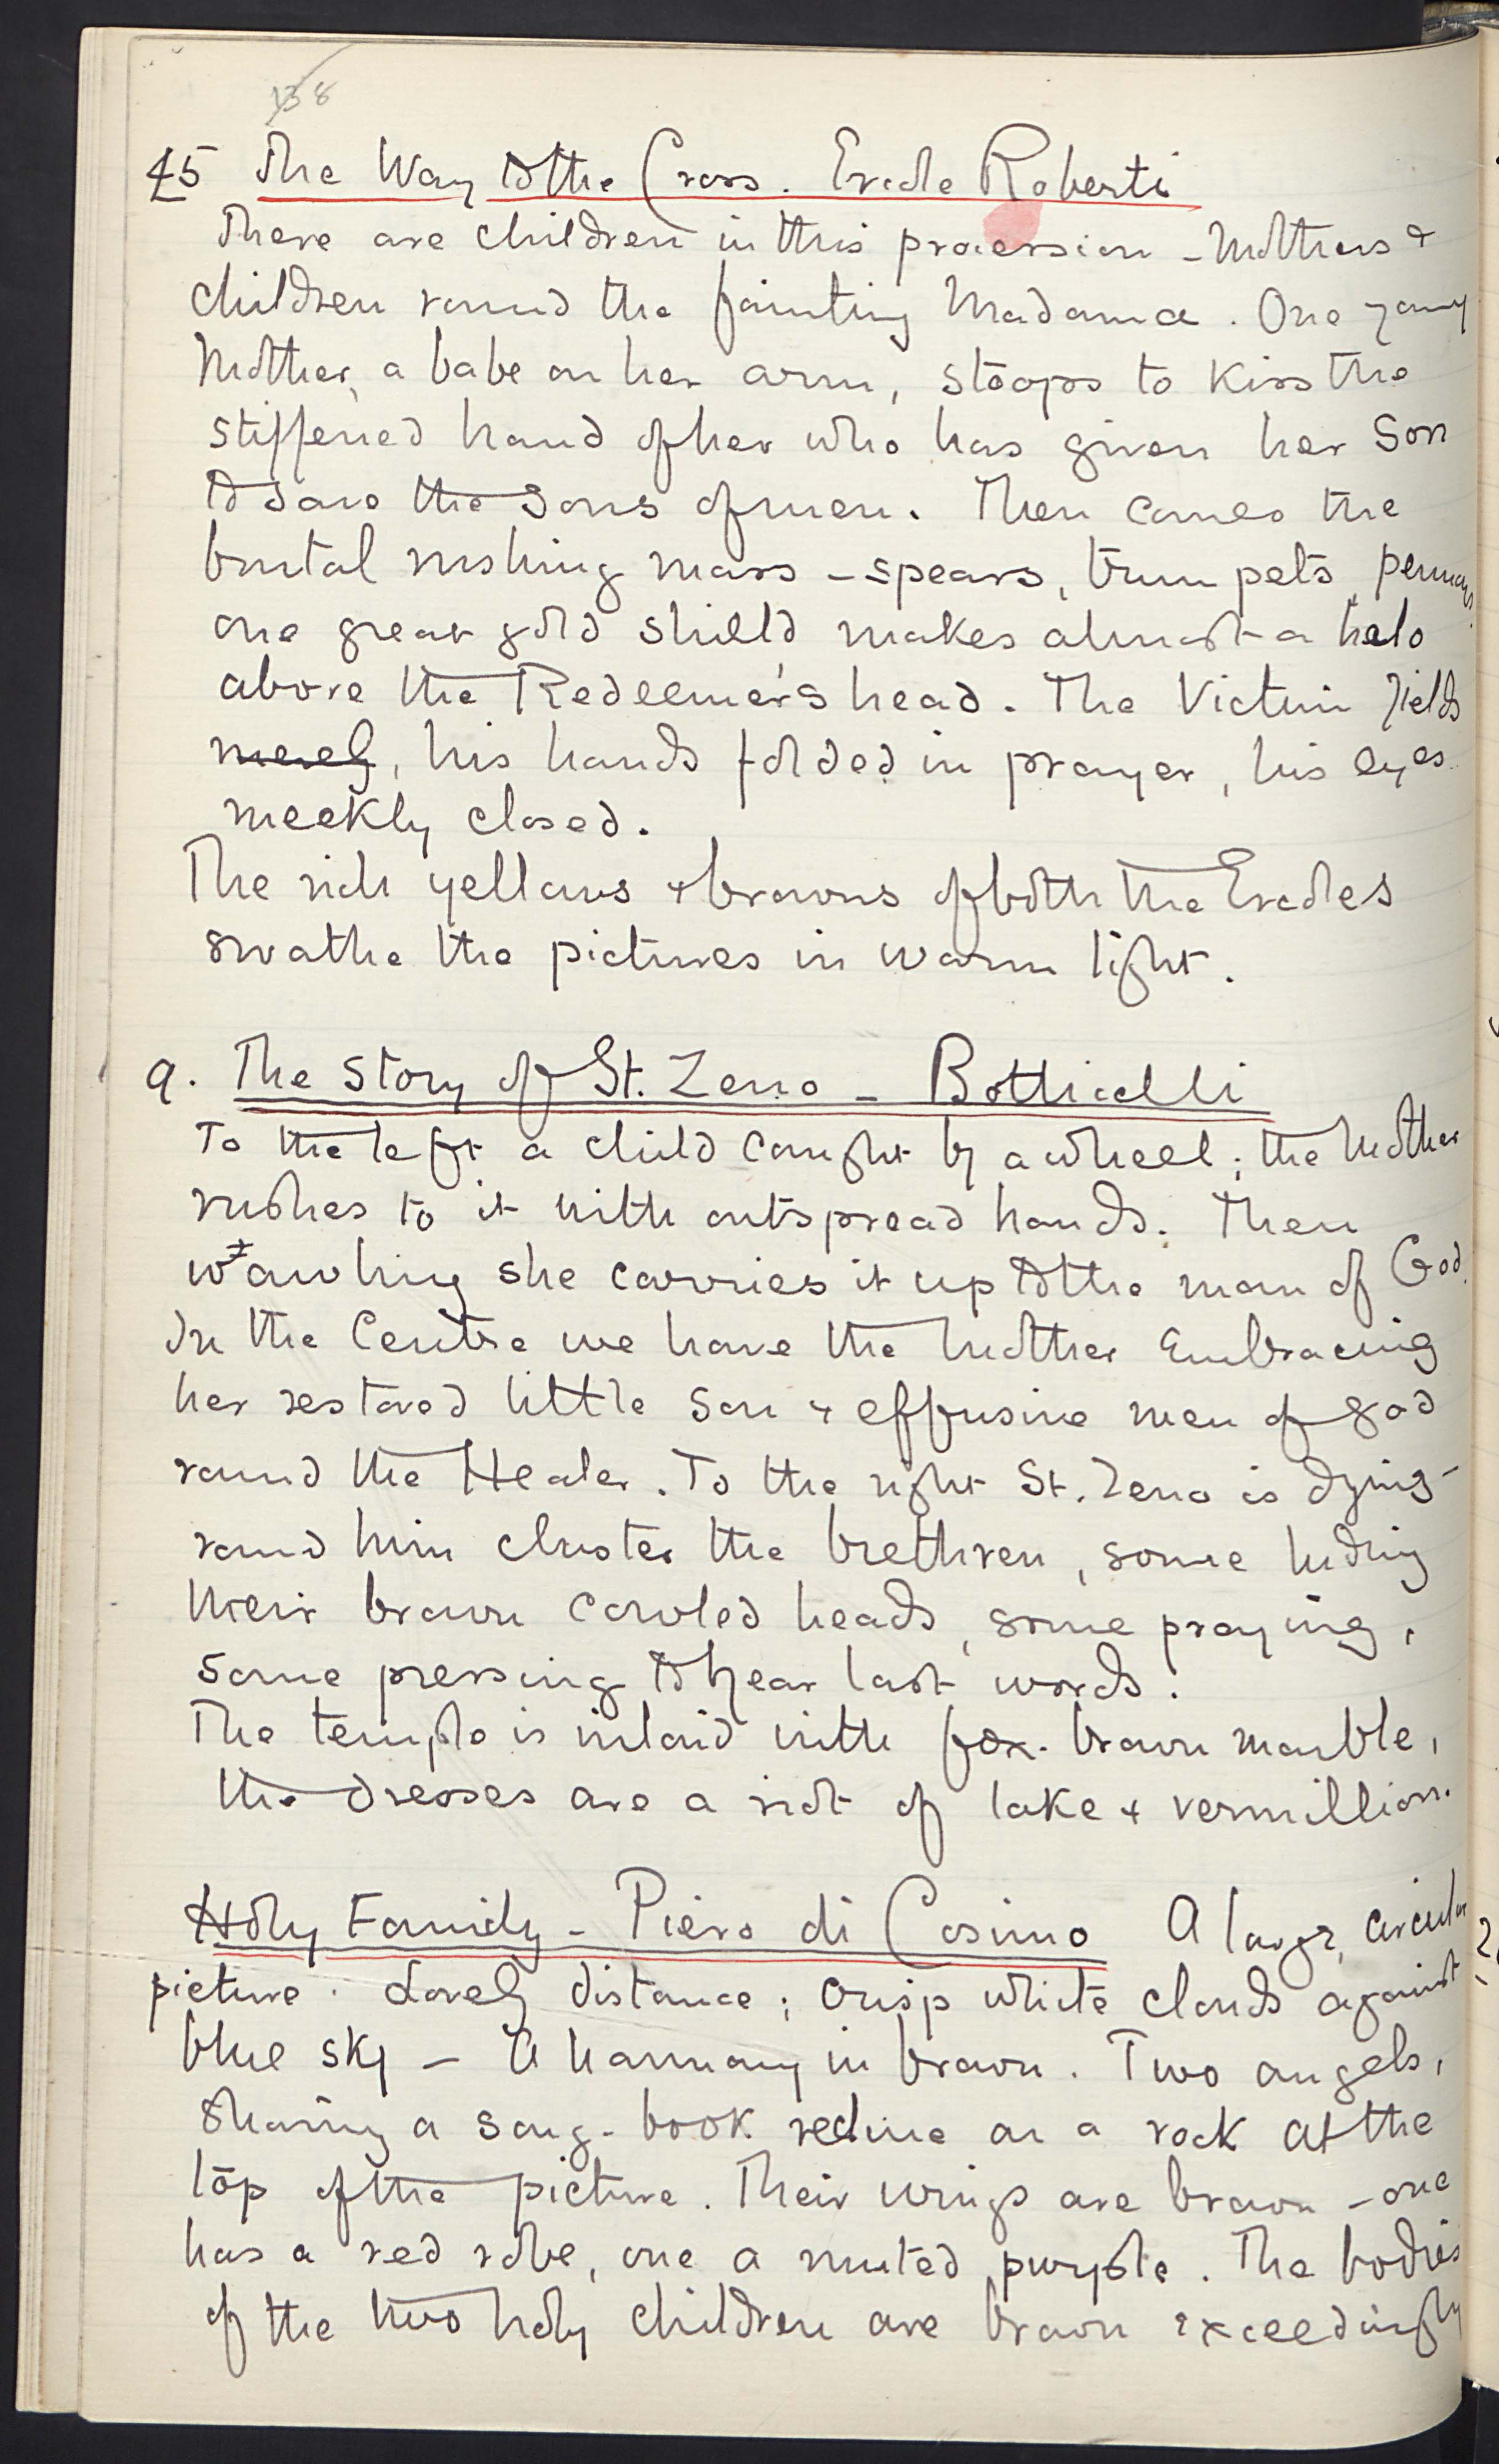 138
45 The Way to the Cross. Ercole Roberti
There are children in this procession – Mothers &
children round the fainting Madonna. One young
Mother, a babe on her arm, stoops to kiss the
stiffened hand of her who has given her Son
to save the sons of men. Then comes the
brutal rushing mass – spears, trumpets, pennons,
one great gold shield makes almost a halo
above the Redeemer's head. The Victim yields
merely, his hands folded in prayer, his eyes
meekly closed.
The rich yellows & browns of both the Ercoles
swathe the pictures in warm light.
9. The Story of St. Zeno – Botticelli
To the left a child caught by a wheel; the Mother
rushes to it with outspread hands. Then
she carries it up to the man of God.
In the Centre we have the Mother Embracing
her restored little son & effusive men of god
round the Healer. To the right St. Zeno is dying –
round him cluster the brethren, some hiding
their brown cowled heads, some praying,
some pressing to hear last words.
The temple is inlaid with fox-brown marble,
the dresses are a riot of lake & vermillion.
Holy Family – Piero di Cosimo A large, circular
picture. Lovely distance; crisp white clouds against
blue sky – A harmony in brown. Two angels,
sharing a song-book recline on a rock at the
top of the picture. Their wings are brown – one
has a red robe, one a muted purple. The bodies
of the two holy children are brown exceedingly